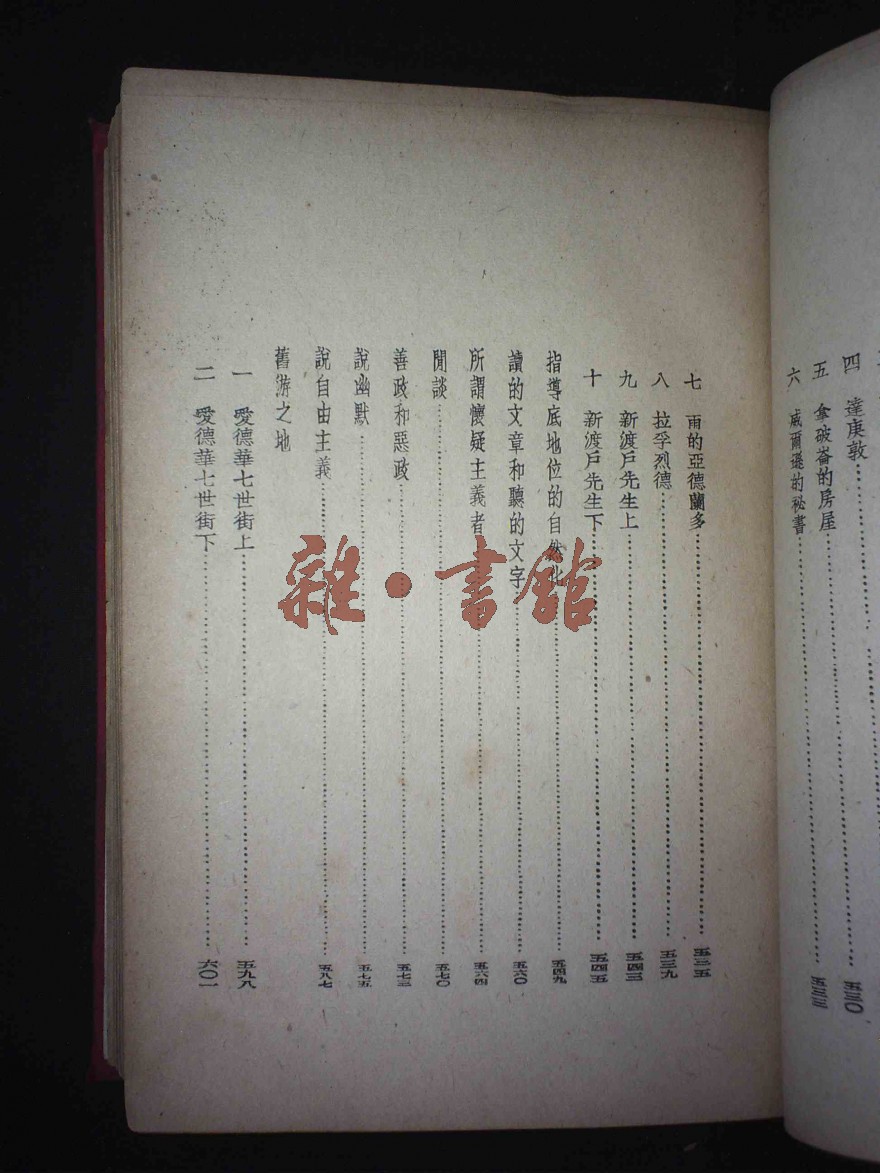 四 達庚敦 五三〇
五 拿破崙的房屋 五三三
六 威爾遜的秘書
七 雨的亞德蘭多 五三五
八 拉孚烈德 五三九
九 新渡戶先生上 五四三
十 新渡戶先生下 五四五
指導底地位的自然化 五四九
讀的文章和聽的文字 五六〇
所謂懷疑主義者 五六四
閒談 五七〇
善政和惡政 五七三
說幽默 五七五
說自由主義 五八七
舊游之地
一 愛德華七世街上 五九八
二 愛德華七世街下 六〇一
雜·書館